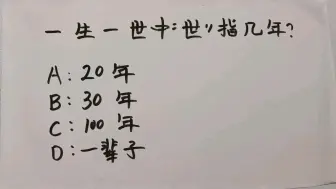 一生一世中"世"指几年?
A: 20年
B: 30年
C: 100年
D: 一辈子